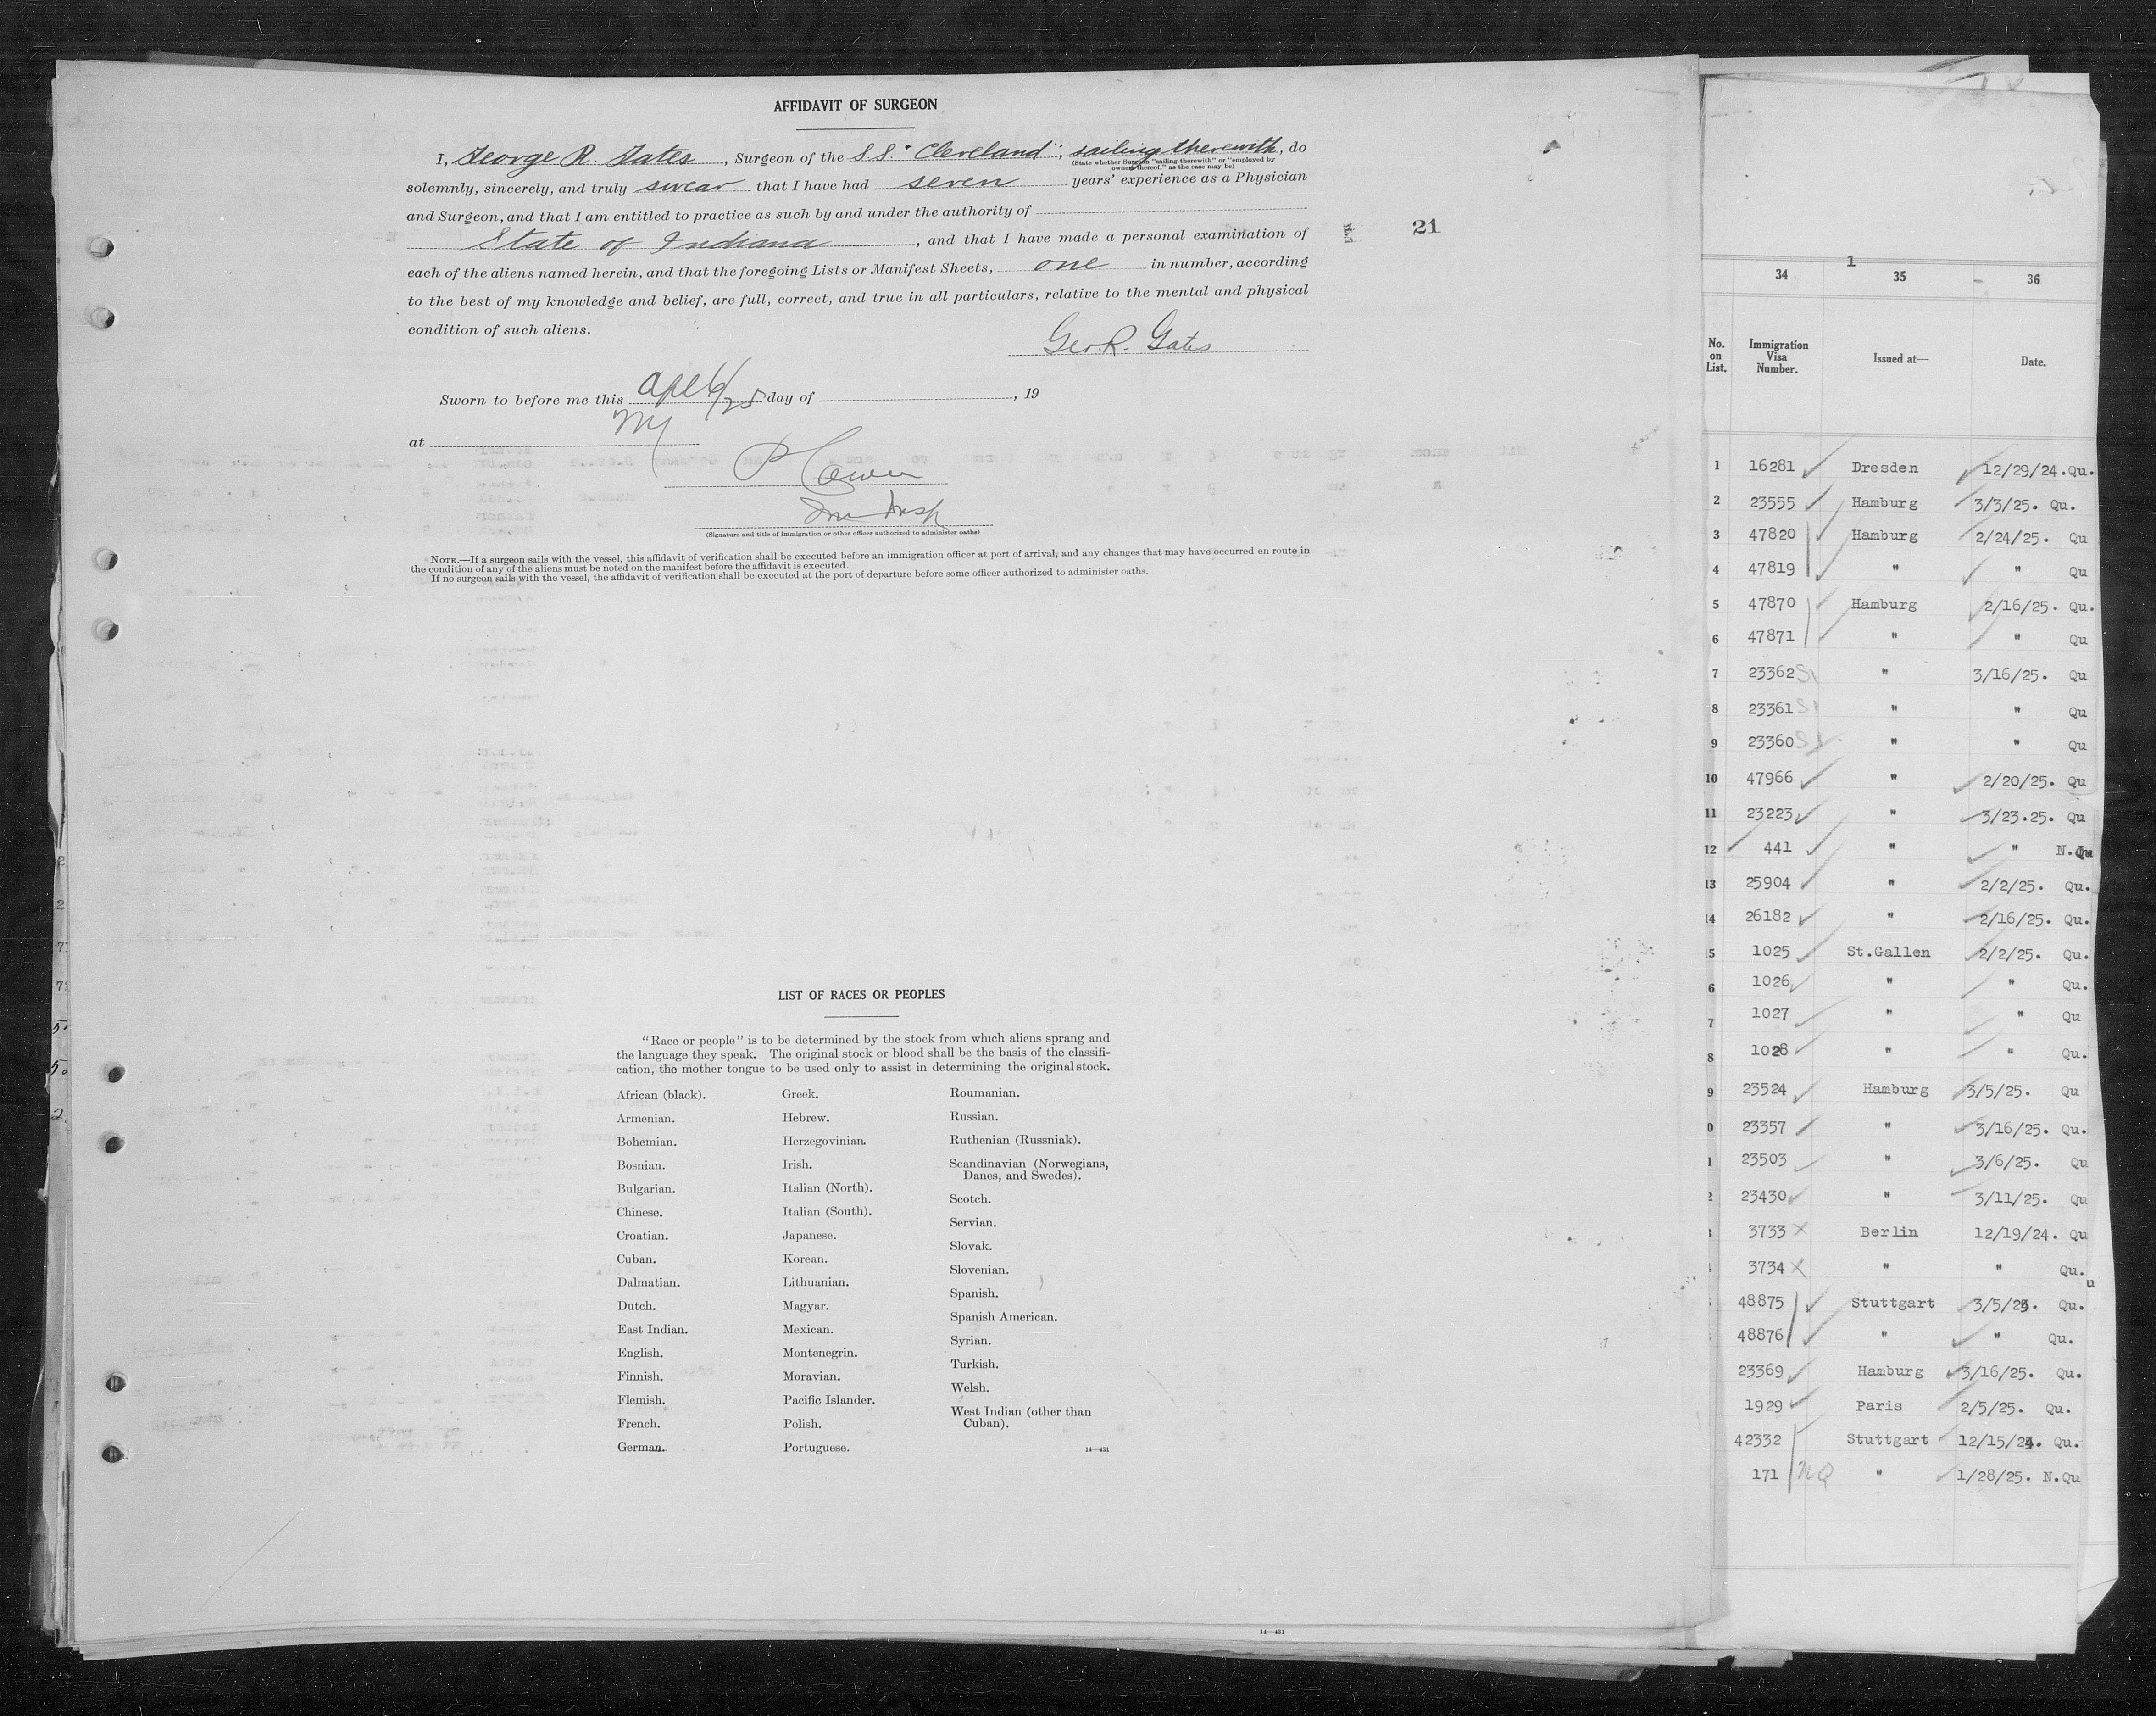 AFFIDAVIT OF SURGEON
I, George R. Gates, Surgeon of the S.S. "Cleveland", sailing therewith, do
(State whether Surgeon "sailing therewith" or "employed by
owners thereof," as the case may be)
solemnly, sincerely, and truly swear that I have had seven years' experience as a Physician
and Surgeon, and that I am entitled to practice as such by and under the authority of
State of Indiana, and that I have made a personal examination of
each of the aliens named herein, and that the foregoing Lists or Manifest Sheets, one in number, according
to the best of my knowledge and belief, are full, correct, and true in all particulars, relative to the mental and physical
condition of such aliens.
Geo. R. Gates
Sworn to before me this Apl 6/25 day of , 19
at NY
Imm Insp
(Signature and title of immigration or other officer authorized to administer oaths)
NOTE.—If a surgeon sails with the vessel, this affidavit of verification shall be executed before an immigration officer at port of arrival, and any changes that may have occurred en route in
the condition of any of the aliens must be noted on the manifest before the affidavit is executed.
If no surgeon sails with the vessel, the affidavit of verification shall be executed at the port of departure before some officer authorized to administer oaths.
21
LIST OF RACES OR PEOPLES
"Race or people" is to be determined by the stock from which aliens sprang and
the language they speak. The original stock or blood shall be the basis of the classifi-
cation, the mother tongue to be used only to assist in determining the original stock.
African (black).
Armenian.
Bohemian.
Bosnian.
Bulgarian.
Chinese.
Croatian.
Cuban.
Dalmatian.
Dutch.
East Indian.
English.
Finnish.
Flemish.
French.
German.
Greek.
Hebrew.
Herzegovinian.
Irish.
Italian (North).
Italian (South).
Japanese.
Korean.
Lithuanian.
Magyar.
Mexican.
Montenegrin.
Moravian.
Pacific Islander.
Polish.
Portuguese.
Roumanian.
Russian.
Ruthenian (Russniak).
Scandinavian (Norwegians,
Danes, and Swedes).
Scotch.
Servian.
Slovak.
Slovenian.
Spanish.
Spanish American.
Syrian.
Turkish.
Welsh.
West Indian (other than
Cuban).
14—431
14—431
1
34 35 36
No. on List. Immigration Visa Number. Issued at— Date.
1 16281 Dresden 12/29/24. Qu.
2 23555 Hamburg 3/3/25. Qu.
3 47820 Hamburg 2/24/25. Qu
4 47819 " " Qu
5 47870 Hamburg 2/16/25. Qu.
6 47871 " " Qu
7 23362 " 3/16/25. Qu
8 23361 " " Qu
9 23360 " " Qu
10 47966 " 2/20/25. Qu
11 23223 " 3/23.25. Qu
12 441 " " N.Qu
13 25904 " 2/2/25. Qu.
14 26182 " 2/16/25. Qu.
5 1025 St.Gallen 2/2/25. Qu.
6 1026 " " Qu.
7 1027 " " Qu
8 1028 " " Qu.
9 23524 Hamburg 3/5/25. Qu
0 23357 " 3/16/25. Qu.
1 23503 " 3/6/25. Qu
2 23430 " 3/11/25. Qu
3733 X Berlin 12/19/24. Qu
3734 X " " Qu.
48875 Stuttgart 3/5/25. Qu.
48876 " " Qu.
23369 Hamburg 3/16/25. Qu.
1929 Paris 2/5/25. Qu.
42332 Stuttgart 12/15/24. Qu.
171 NQ " 1/28/25. N.Qu